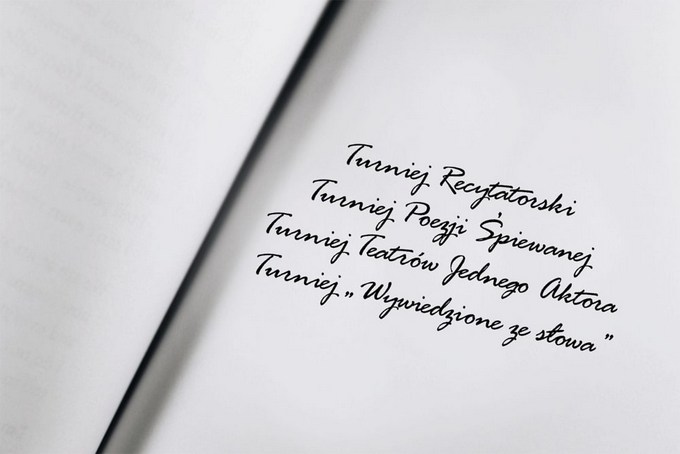 Turniej Recytatorski
Turniej Poezji Śpiewanej
Turniej Teatrów Jednego Aktora
Turniej „Wywiedzione ze słowa”